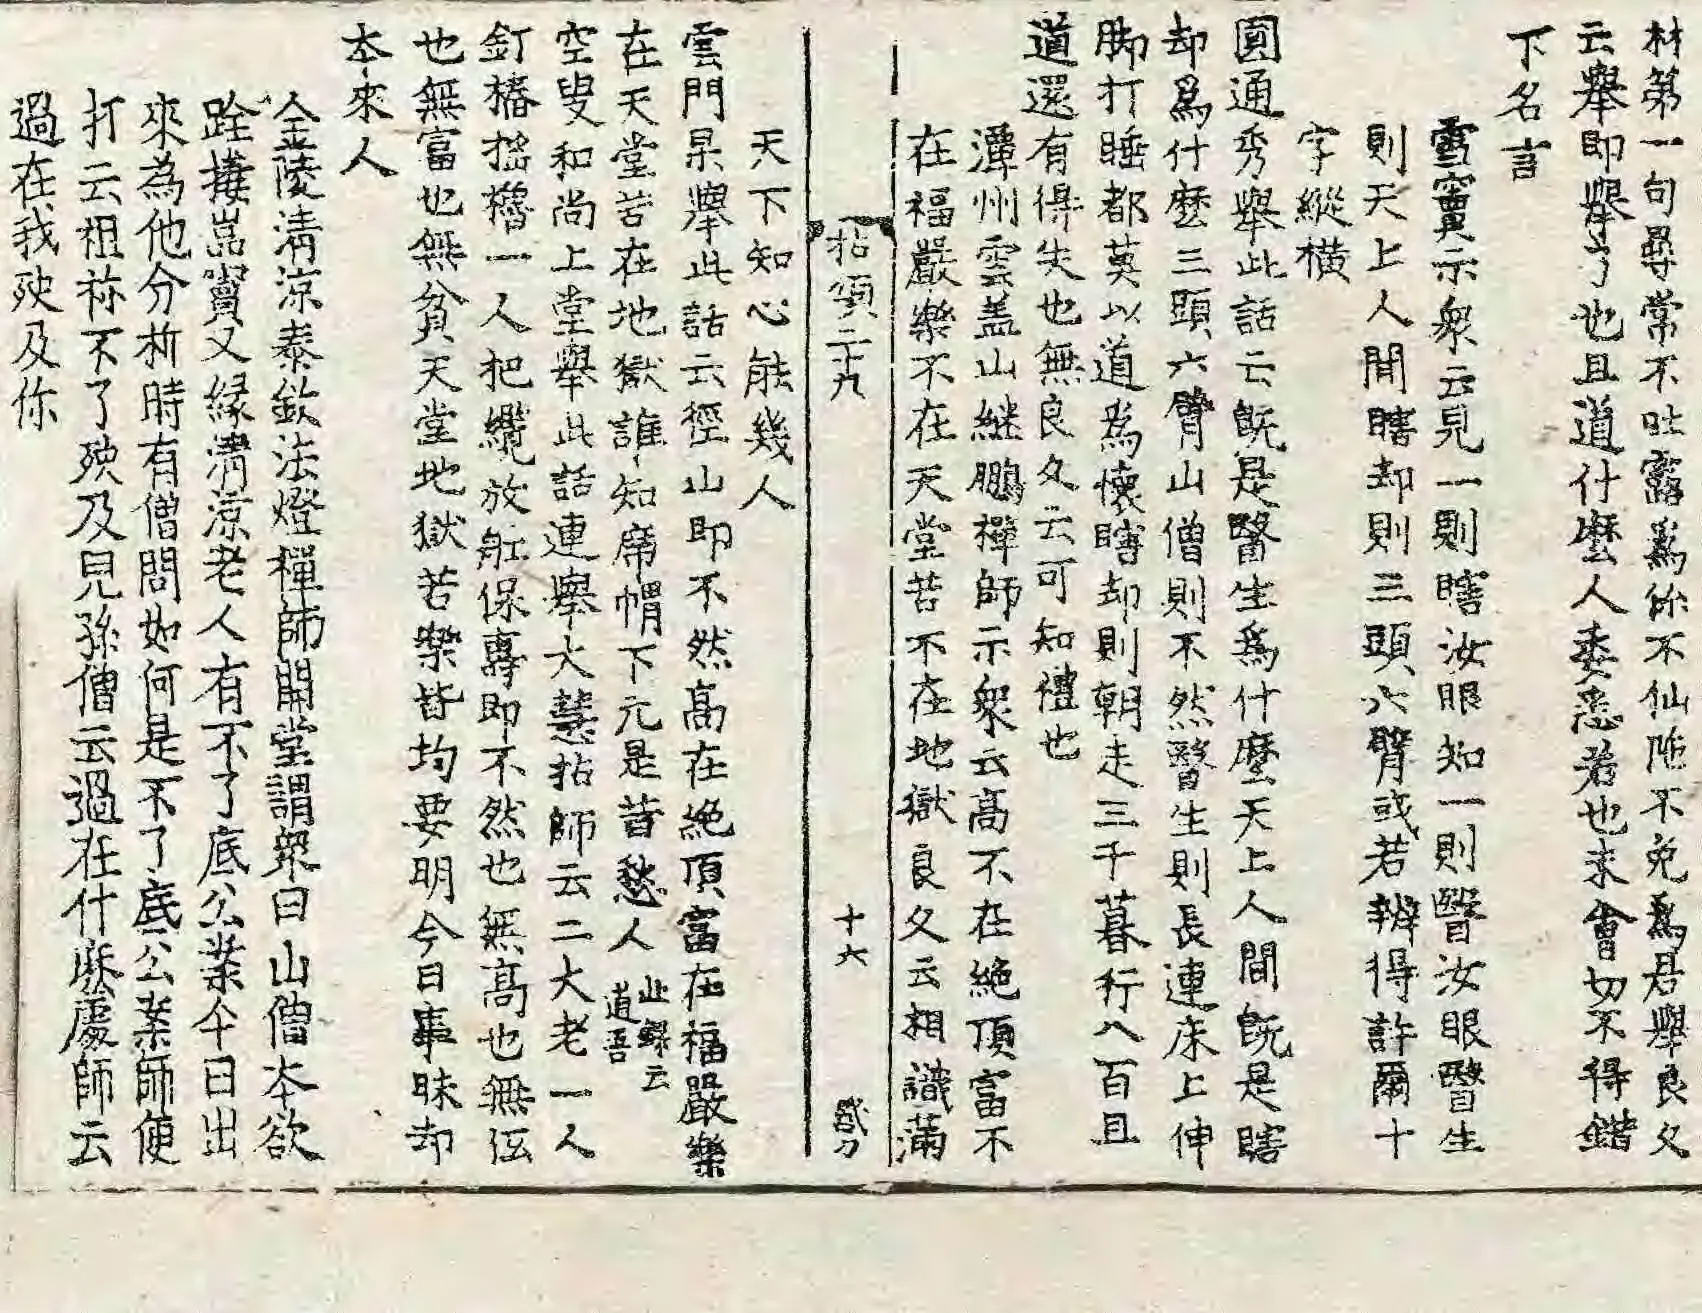 材第一句尋常不吐露爲你不仙陁不免爲君舉良久
云舉即舉了也且道什麽人委悉若也未會切不得錯
下名言
雪竇示衆云見一則瞎汝眼知一則瞖汝眼瞖生
則天上人間瞎却則三頭六臂或若辨得許爾十
字縱橫
圓通秀舉此話云旣是瞖生爲什麽天上人間旣是瞎
却爲什麽三頭六臂山僧則不然瞖生則長連床上伸
脚打睡都莫以道爲懷瞎却則朝走三千暮行八百且
道還有得失也無良久云可知禮也
潭州雲盖山継鵬禪師示衆云高不在絶頂富不
在福嚴樂不在天堂苦不在地獄良久云相識滿
拈頌二十九 十六
天下知心能幾人
雲門杲舉此話云徑山即不然高在絶頂富在福嚴樂
在天堂苦在地獄誰知席帽下元是昔愁人此錄云道吾
空叟和尚上堂舉此話連舉大慧拈師云二大老一人
釘樁搖櫓一人把纜放舡保壽即不然也無高也無伍
也無富也無貧天堂地獄苦樂皆均要明今日事昧却
本來人
金陵淸涼泰欽法燈禪師開堂謂衆曰山僧本欲
跧捿嵓竇又縁淸涼老人有不了底公案今日出
來為他分析時有僧問如何是不了底公案師便
打云祖祢不了殃及兒孫僧云過在什麽處師云
過在我殃及你